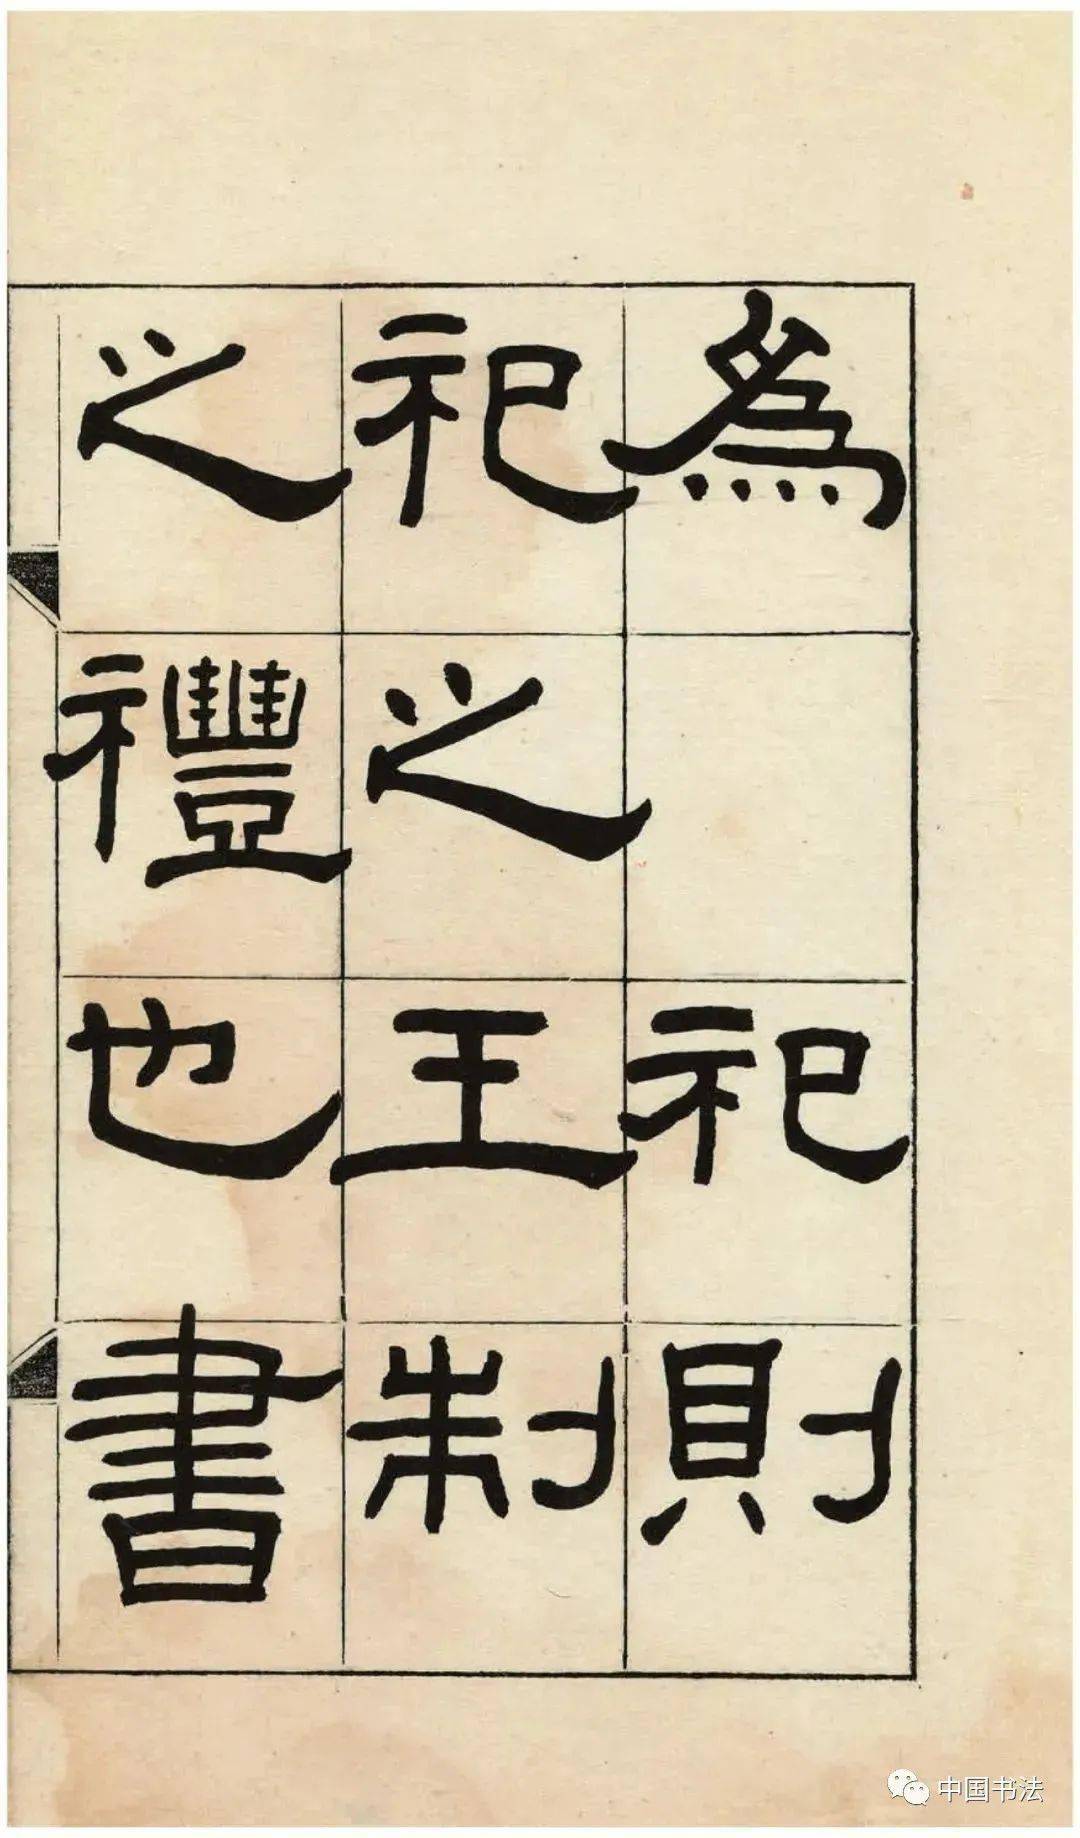 為　祀則
祀之王制
之禮也書
中国书法